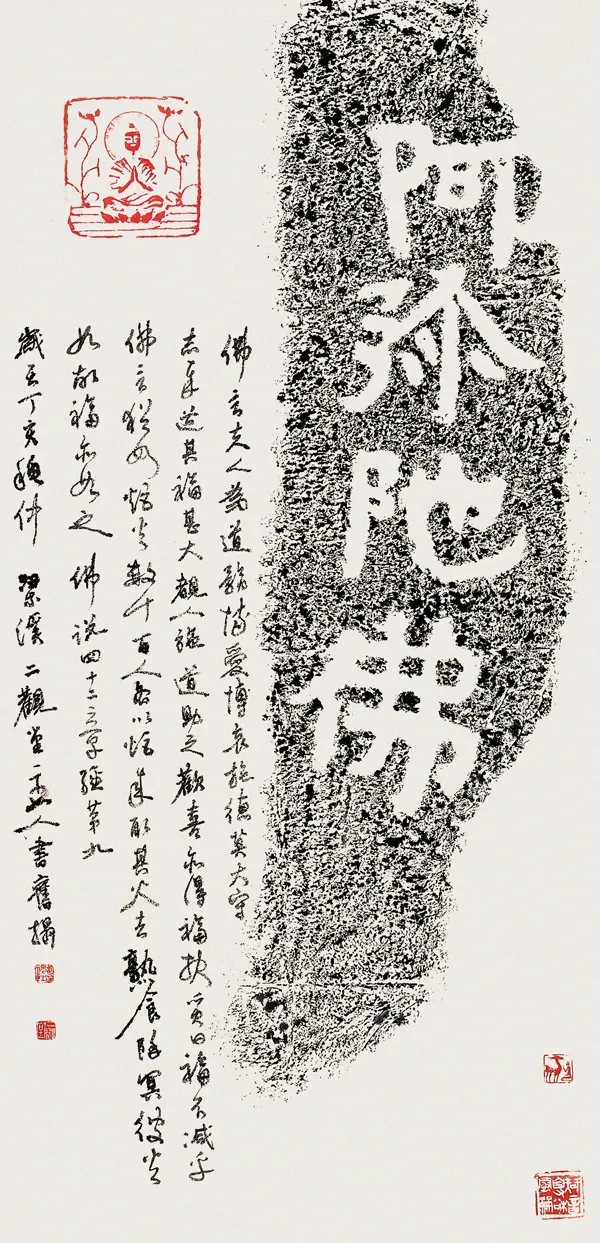 阿弥陁佛
佛言夫人為道務博愛博哀施德莫大守
志奉道其福甚大覩人施道助之歡喜亦得福報質曰福不減乎
佛言猶如炬火數千百人各以炬来取其火去熟食除冥彼火
如故福亦如之 佛说四十二章經第九
歲在丁亥穐仲 梁溪二觀堂主人書舊搨